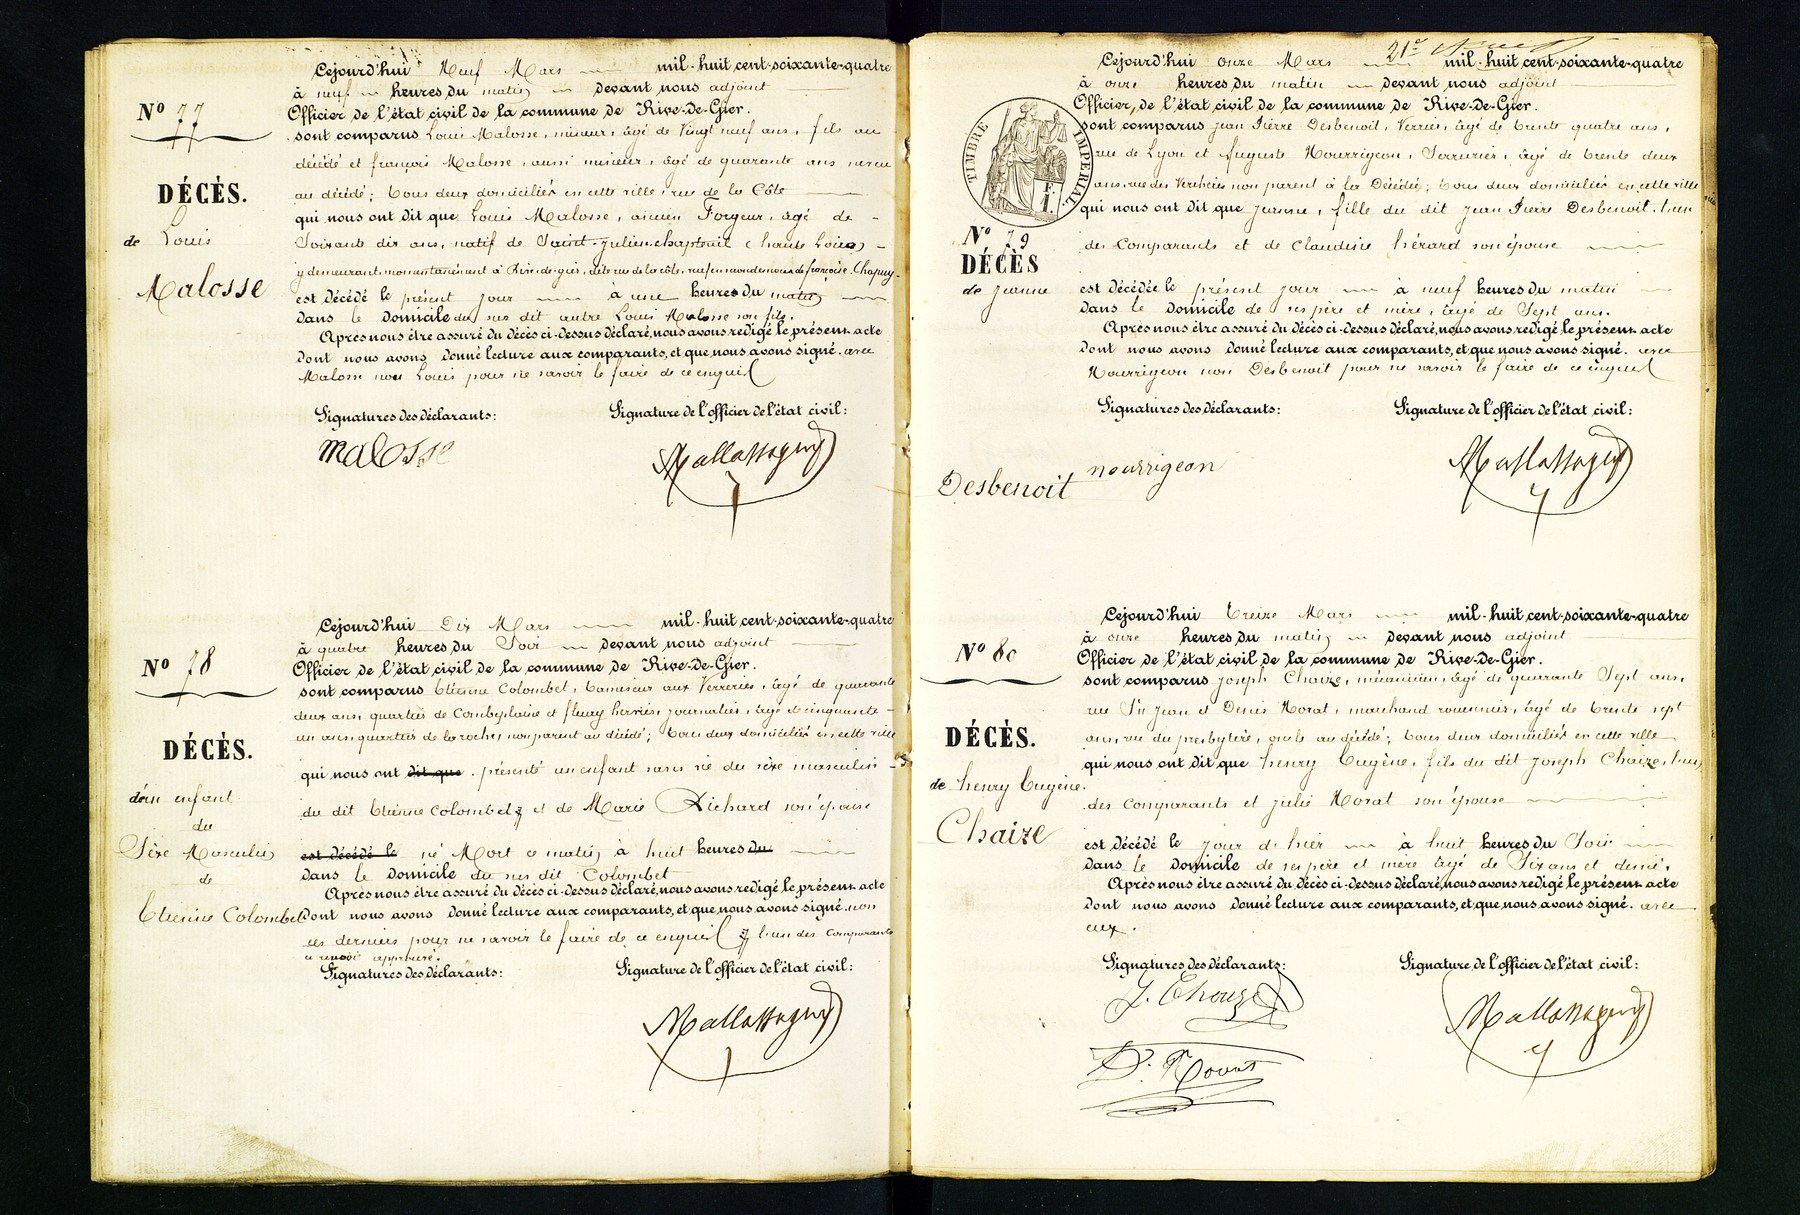 Cejourd'hui Neuf Mars mil-huit cent-soixante-quatre
à neuf heures du matin devant nous adjoint
Officier de l'état civil de la commune de Rive-de-Gier.
N° 77
sont comparus Louis Malosse, mineur, âgé de Vingt neuf ans, fils au
décédé et françois Malosse, aussi mineur, âgé de quarante ans neveu
au décédé; tous deux domiciliés en cette ville, rue de la Côte
DÉCÈS.
de Louis
Malosse
qui nous ont dit que Louis Malosse, ancien Forgeur, âgé de
Soixante dix ans, natif de Saint-Julien-chapteuil (haute Loire)
y demeurant, momentanément à Rive-de-gier, dite rue de la côte, veuf en secondes noces de françoise Chapuy
est décédé le présent jour à une heures du matin
dans le domicile du sus dit autre Louis Malosse son fils.
Après nous être assuré du décès ci-dessus déclaré, nous avons redigé le présent acte
dont nous avons donné lecture aux comparants, et que nous avons signé. avec
Malosse non Louis pour ne savoir le faire de ce enquis
Signatures des déclarants: Signature de l'officier de l'état civil:
Malosse
Cejourd'hui Dix Mars mil-huit cent-soixante-quatre
à quatre heures du Soir devant nous adjoint
Officier de l'état civil de la commune de Rive-de-Gier.
N° 78
sont comparus Etienne Colombet, tamiseur aux Verreries, âgé de quarante
deux ans, quartier de Combeplaine et fleury hervier, journalier, âgé de cinquante
un ans, quartier de la roche, non parent au décédé; tous deux domiciliés en cette ville
DÉCÈS.
d'un enfant
du
Sexe Masculin
de
Etienne Colombet
qui nous ont dit que présenté un enfant sans vie du sexe masculin
du dit Etienne Colombet et de Marie Richard son épouse
est décédé le né Mort ce matin à huit heures du
dans le domicile du sus dit Colombet
Après nous être assuré du décès ci-dessus déclaré, nous avons redigé le présent acte
dont nous avons donné lecture aux comparants, et que nous avons signé. non
ces derniers pour ne savoir le faire de ce enquis l'un des comparants
renvoi approuvé.
Signatures des déclarants: Signature de l'officier de l'état civil:
21e
Cejourd'hui onze Mars mil-huit cent-soixante-quatre
à onze heures du matin devant nous adjoint
Officier de l'état civil de la commune de Rive-de-Gier.
TIMBRE IMPERIAL
1 F.
sont comparus Jean Pierre Desbenoit, Verrier, âgé de trente quatre ans,
rue de Lyon et Auguste Nourrigeon, Serrurier, âgé de trente deux
ans, rue des Verchères non parent à la Décédée; tous deux domiciliés en cette ville
N° 79
DÉCÈS
de Jeanne
Desbenoit
qui nous ont dit que Jeanne, fille du dit Jean Pierre Desbenoit, l'un
des Comparants et de Claudine hérard son épouse
est décédée le présent jour à neuf heures du matin
dans le domicile de ses père et mère, âgée de Sept ans.
Après nous être assuré du décès ci-dessus déclaré, nous avons redigé le présent acte
dont nous avons donné lecture aux comparants, et que nous avons signé. avec
Nourrigeon non Desbenoit pour ne savoir le faire de ce enquis
Signatures des déclarants: Signature de l'officier de l'état civil:
nourrigeon
Cejourd'hui Treize Mars mil-huit cent-soixante-quatre
à onze heures du matin devant nous adjoint
Officier de l'état civil de la commune de Rive-de-Gier.
N° 80
sont comparus Joseph Chaize, mécanicien, âgé de quarante Sept ans,
rue St Jean et Denis Morat, marchand rouennier, âgé de trente sept
ans, rue du presbytère, oncle au décédé; tous deux domiciliés en cette ville
DÉCÈS.
de henry Eugène
Chaize
qui nous ont dit que henry Eugène, fils du dit Joseph Chaize, l'un
des comparants et Julie Morat son épouse
est décédé le jour d'hier à huit heures du Soir
dans le domicile de ses père et mère âgé de Six ans et demi.
Après nous être assuré du décès ci-dessus déclaré, nous avons redigé le présent acte
dont nous avons donné lecture aux comparants, et que nous avons signé. avec
eux.
Signatures des déclarants: Signature de l'officier de l'état civil: